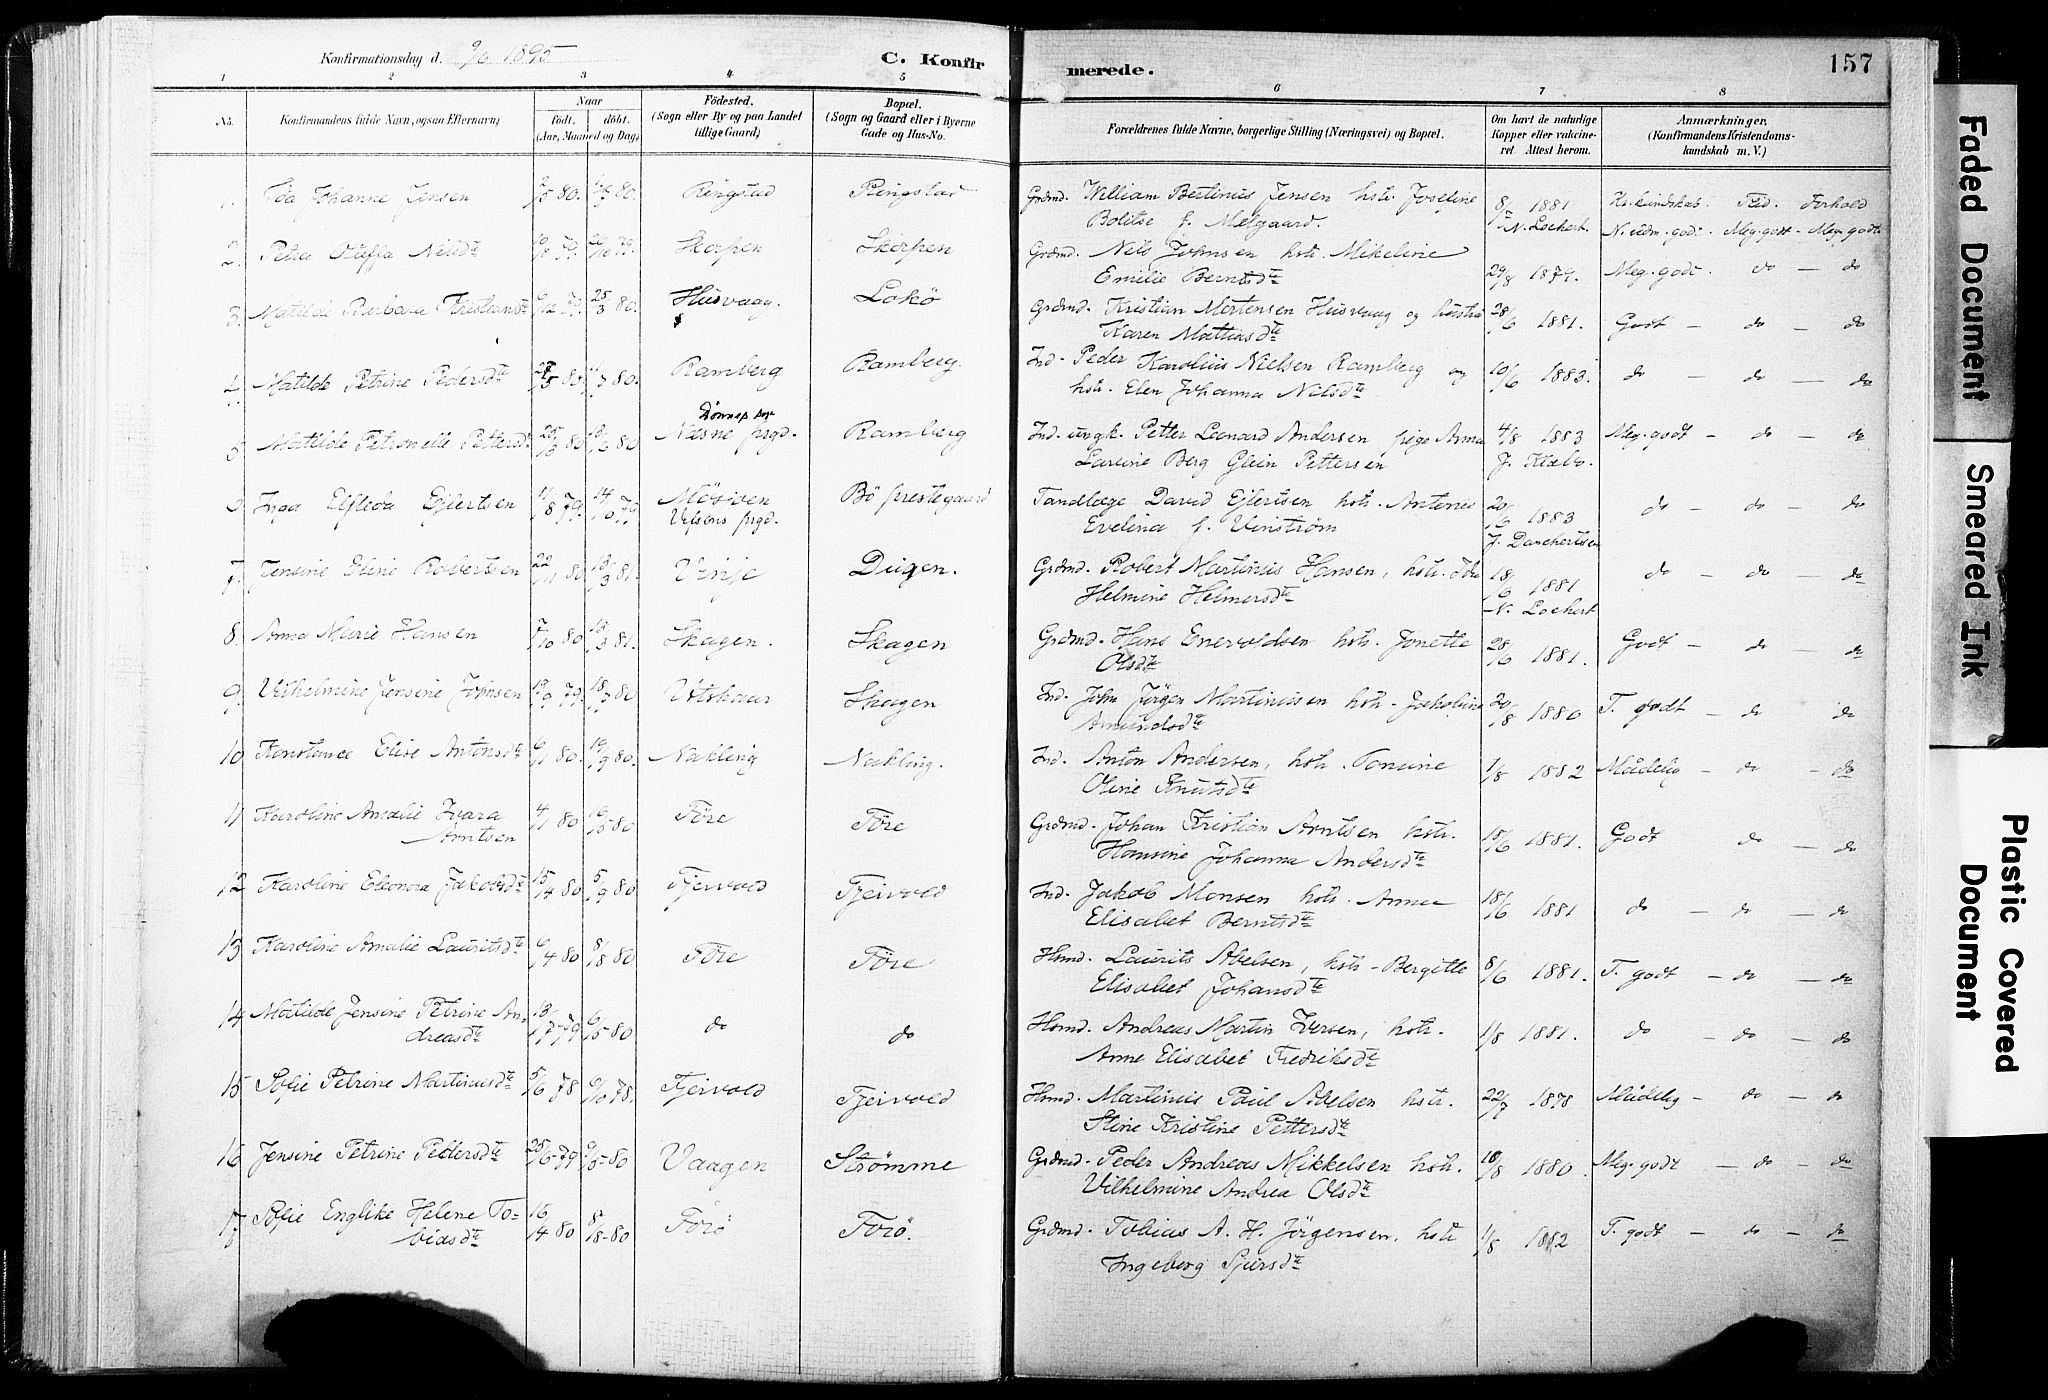 Konfirmationsdag d. 9/6 1895
C. Konfirmerede.
157
1 2 3 4 5 6 7 8
No.
Konfirmandens fulde Navn, ogsaa Efternavn)
Naar
født. døbt.
(Aar, Maaned og Dag)
Födested.
(Sogn eller By og paa Landet
tillige Gaard)
Bopæl.
(Sogn og Gaard eller i Byerne
Gade og Hus-No.
Forældrenes fulde Navne, borgerlige Stilling (Næringsvei) og Bopæl.
Om havt de naturlige
Kopper eller vakcine-
ret. Attest herom.
Anmærkninger.
(Konfirmandens Kristendoms-
kundskab m. V.)
1. Ida Johanne Jensen 80. 80. Ringstad Ringstad Grdmd. William Bertinus Jensen hstr. Joseline 1881 Kr. kundskab. Flid. Forhold
Bolitse f. Melgaard. N. Lockert. N. udm. godt Meg. godt - Meg. godt
2. Petra Nilsdte 79. 79. Skorpen Skorpen Grdmd. Nils Johnsen hstr. Mikeline
Emilie Berntsdte 29/8 1879. Meg. godt. do - do
3. Matilde Barbara Kristiansdte 79. 25/3 80. Husvaag. Lokö Grdmd. Kristian Mortensen Husvaag og hustru 28/6 1881. Godt - do - do
Karen Mattiasdte
4. Matilde Petrine Pedersdte 80. Ramberg Ramberg. Ind. Peder Karolius Nielsen Ramberg og 10/6 1883. do - do - do
hstr. Elen Johanna Nilsdte
5 Matilde Petronelle Pettersdte 25/3 80 80 Dönnes sogn
Næsne prgd. Ramberg Ind. ungk. Petter Leonard Andersen pige Anna 4/8 1883 Meg. godt - do - do
Lavine Berg Glein Pettersen J. Klæbo.
6 Inga Elfleda Ejlertsen 11/8 79. 14/10 79 Mosjöen Bö prestegaard Tandlæge David Ejlertsen hstr. Antonie 20/6 1883 do - do - do
Vefsens prgd. Evelina f. Vinström J. Danchertsen
7. Jensine Eline Robertsen 22/11 80 13/3 81. Vinje Digen. Grdmd. Robert Martinus Hansen, hstr. Ida 18/6 1881 do - do - do
Helmine Helmersdte N. Lockert
8. Anna Marie Hansen 7/10 80 13/3 81. Skagen. Skagen Grdmd. Hans Enevoldsen hstr. Jonette 28/6 1881. Godt - do - do
Olsdte
9. Vilhelmine Jensine Johnsen 19/9 79. 80 Utskaar Skagen Ind. John Jörgen Martinussen hstr. Jakobine 20/8 1880 T. godt - do do
Amundsdte
10 Konstance Elise Antonsdte 6/1 80. 19/9 80. Nakling Nakling. Ind. Anton Andersen, hstr. Tomine 1/8 1882 Mådelig - do - do
Oline Knutsdte
11 Karoline Amalie Ivara 4/1 80 16/5 80 Före Före Grdmd. Johan Kristian Arntsen hstr. 15/6 1881. Godt do - do
Arntsen Hansine Johanna Andersdte
12 Karoline Eleonora Jakobsdte 15/4 80 5/9 80 Fjeivold Fjeivold Ind. Jakob Monsen hstr. Anne 18/6 1881 do - do - do
Elisabet Berntsdte
13 Karoline Amalie Lauritsdte 6/4 80 8/8 80 Före Före Hsmd. Laurits Abelsen, hstr. Bergitte 8/6 1881. T. godt - do - do
Elisabet Johansdte
14 Matilde Jensine Petrine An- 13/7-79 6/5-80 do do Hsmd. Andreas Martin Iversen, hstr. 1/8 1881. do do do
dreasdte Anne Elisabet Fredriksdte
15 Sofie Petrine Martinusdte 5/6 78 6/10 78. Fjeivold Fjeivold Hsmd. Martinus Paul Abelsen hstr. 22/7 1878 Mådelig - do - do
Stine Kristine Pettersdte
16 Jensine Petrine Pedersdte 25/6-79 9/5-80 Vaagen Strømme Grdmd. Peder Andreas Mikkelsen hstr. 10/8 1880. Meg. godt - do - do
Vilhelmine Andrea Olsdte
17 Sofie Englike Helene To- 16/4 80 8/8-80 Forö Forö. Grdmd. Tobias A. H. Jörgensen, hstr 1/8 1882 T. godt - do - do
biasdte Ingeborg Sjursdte
Faded Document
Smeared Ink
Plastic Covered
Document